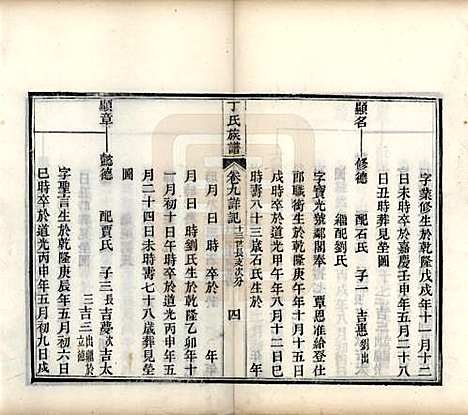 顯名 修德 配石氏 子一 吉惠劉出
繼配劉氏
字葉修生於乾隆戊戌年十一月十二
日未時卒於嘉慶壬申年五月二十八
日丑時葬見塋圖
字寶光號鄰閣奉 覃恩准給登仕
郎職銜生於乾隆庚子年十月
時卒於道光甲午年八月十二日巳
時壽八十三歲石氏生於
年 月 日 時卒於 年
月 日 時劉氏生於乾隆乙卯年十
一月初十日午時卒於道光丙申年五
月二十四日未時壽七十八歲葬見塋
圖
丁氏族譜
卷九詳記
十二世長支次分
四
顯章 懿德 配賈氏 子三 長吉夢 次吉太
三吉三 出繼於立德
字聖言生於乾隆庚辰年五月初六日
巳時卒於道光丙申年五月初九日戌